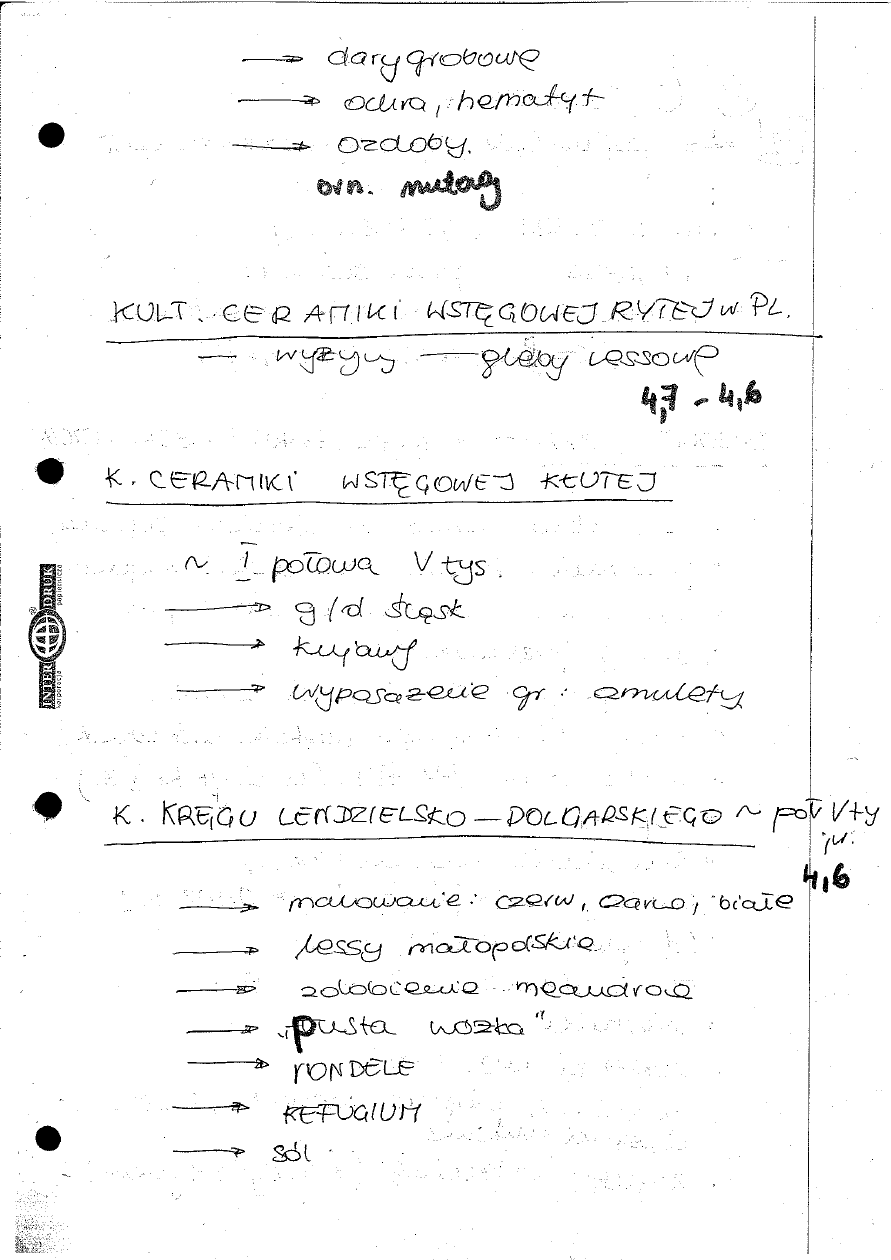 → dary grobowe
→ ochra, hematyt
→ ozdoby.
orn. nutowy
KULT. CERAMIKI WSTĘGOWEJ RYTEJ W PL.
— wyżyny — gleby lessowe
4,7 - 4,6
K. CERAMIKI WSTĘGOWEJ KŁUTEJ
~ I połowa V tys.
→ g/d śląsk
→ kujawy
→ wyposażenie gr: amulety
INTER DRUK
korporacja papiernicza
K. KRĘGU LENDZIELSKO — POLGARSKIEGO ~ poł V ty
4,6
→ malowanie: czerw, czarno, białe
→ lessy małopolskie
→ zdobienie meandrowe
→ "pusta nóżka"
→ RONDELE
→ REFUGIUM
→ sól